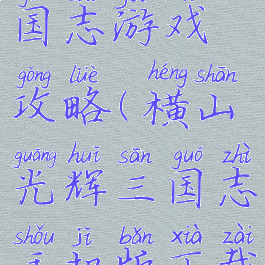 国志游戏
gōng lüè héng shān
攻略(横山
guāng huī sān guó zhì
光辉三国志
shǒu jī bǎn xià zài
手机版下载